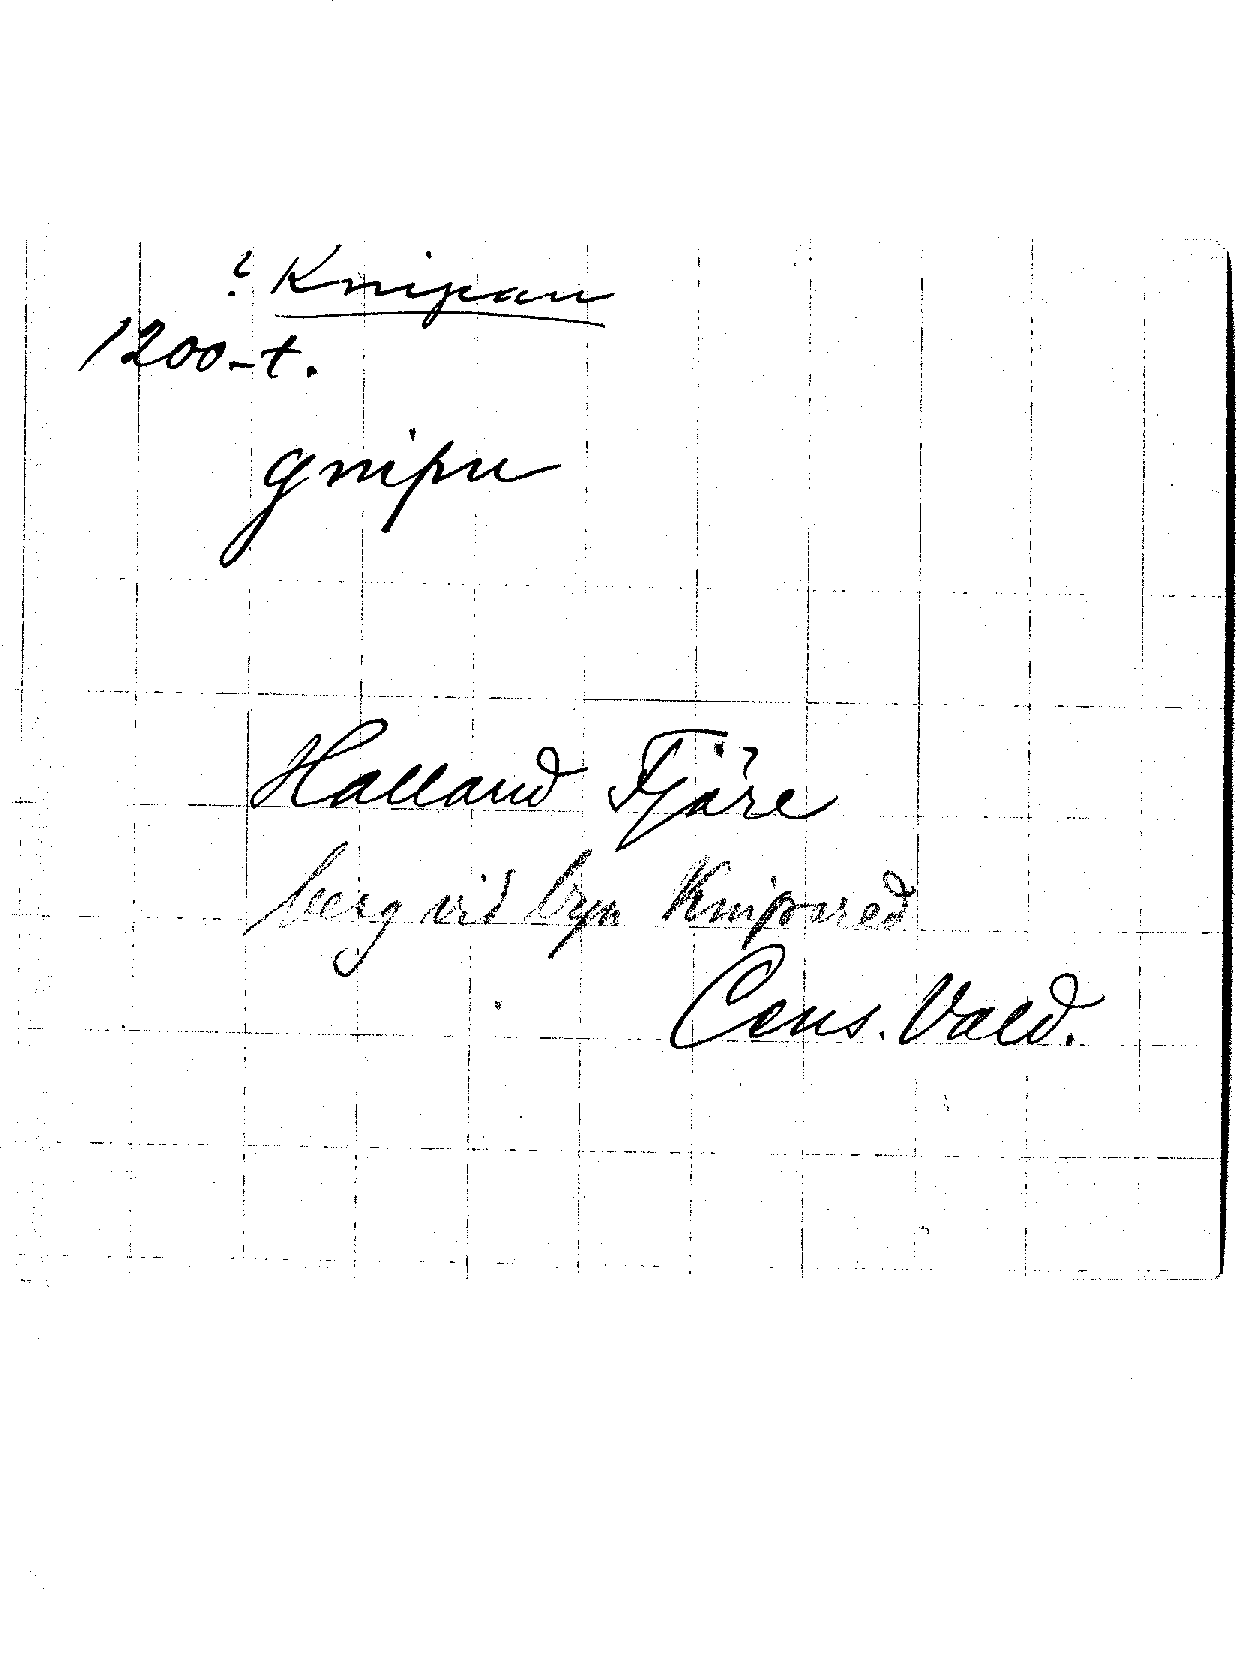 ? Knipan
1200-t.
gnipu
Halland Fjäre
berg vid byn Knipared
Cens. Vald.